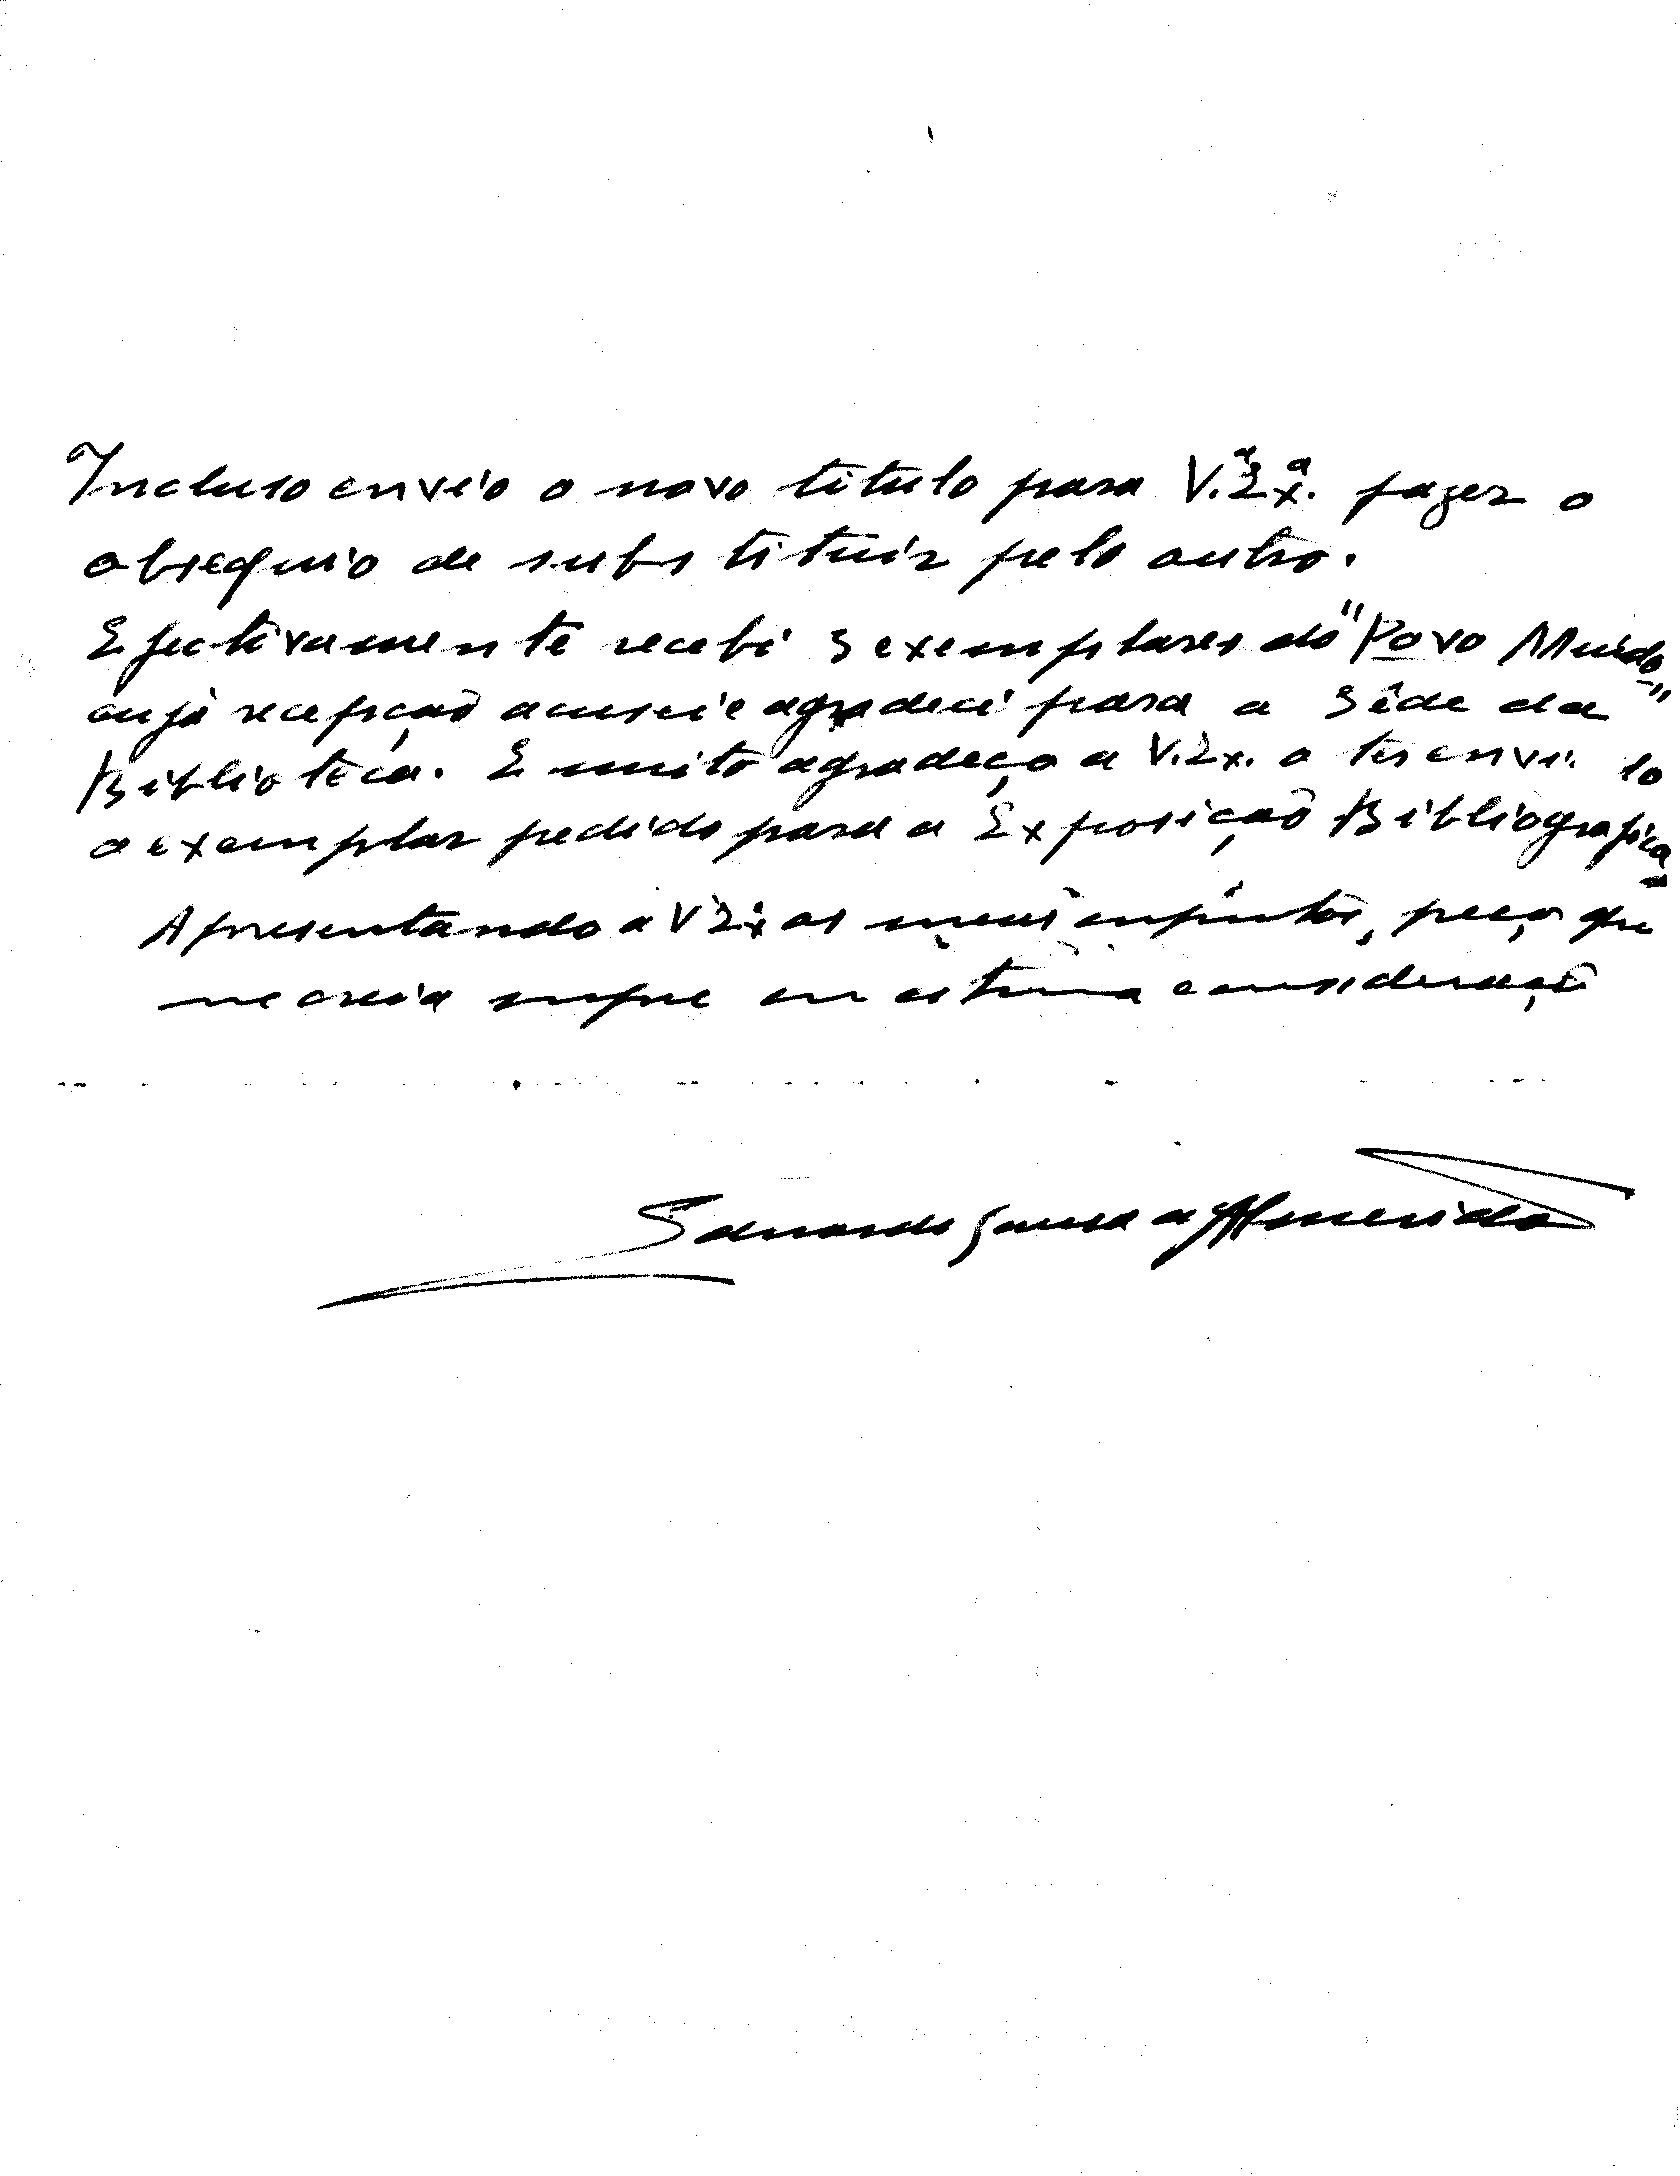 Incluso envio o novo titulo para V.ª Ex.ª fazer o
obsequio de substituir pelo outro.
Efectivamente recebi 3 exemplares do "Povo Miúdo"
cuja recepção acusei e agradeci para a Séde da
Biblioteca. E muito agradeço a V. Ex. o ter envi lo
o exemplar pedido para a Exposição Bibliografica
Apresentando a V. Ex.ª os meus, peço que
me creia sempre em estima e consideração
Eduardo d'Almeida